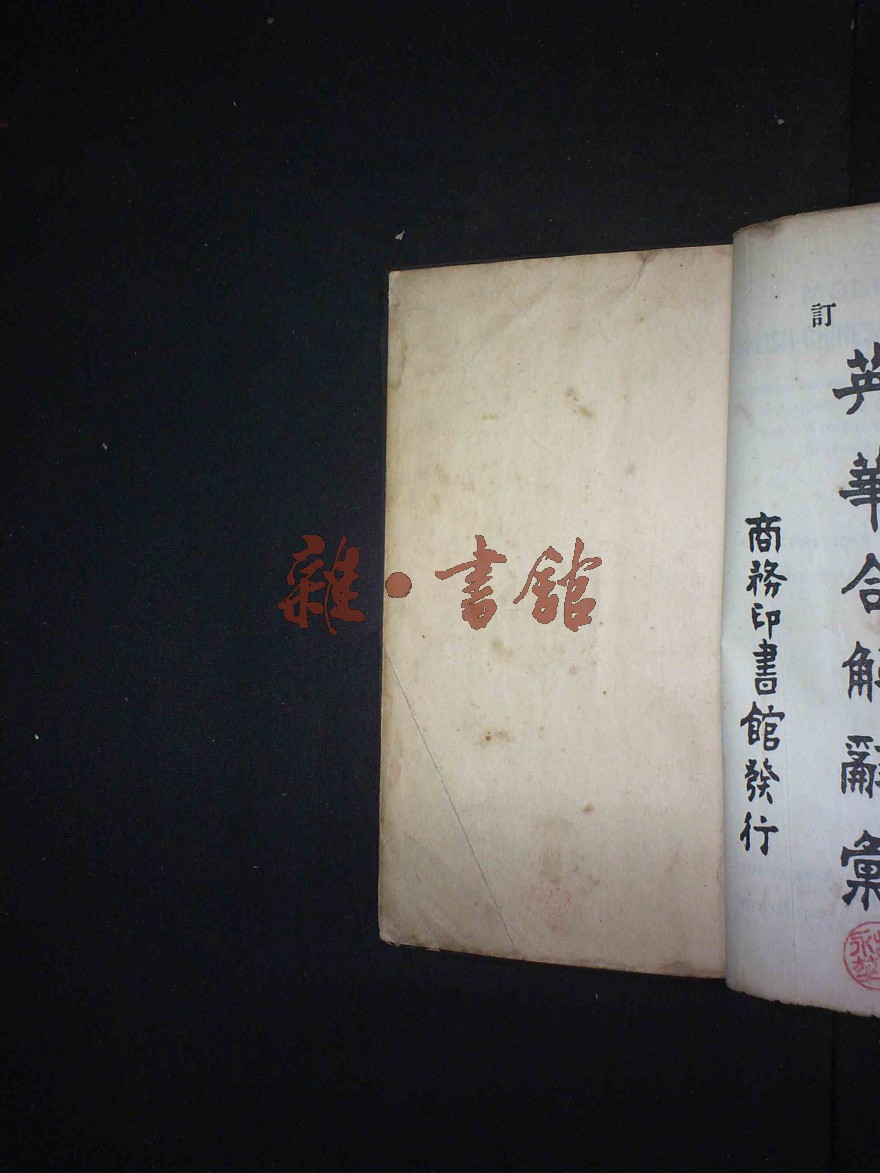 訂
英華合解辭彙
商務印書館發行
雜·書館